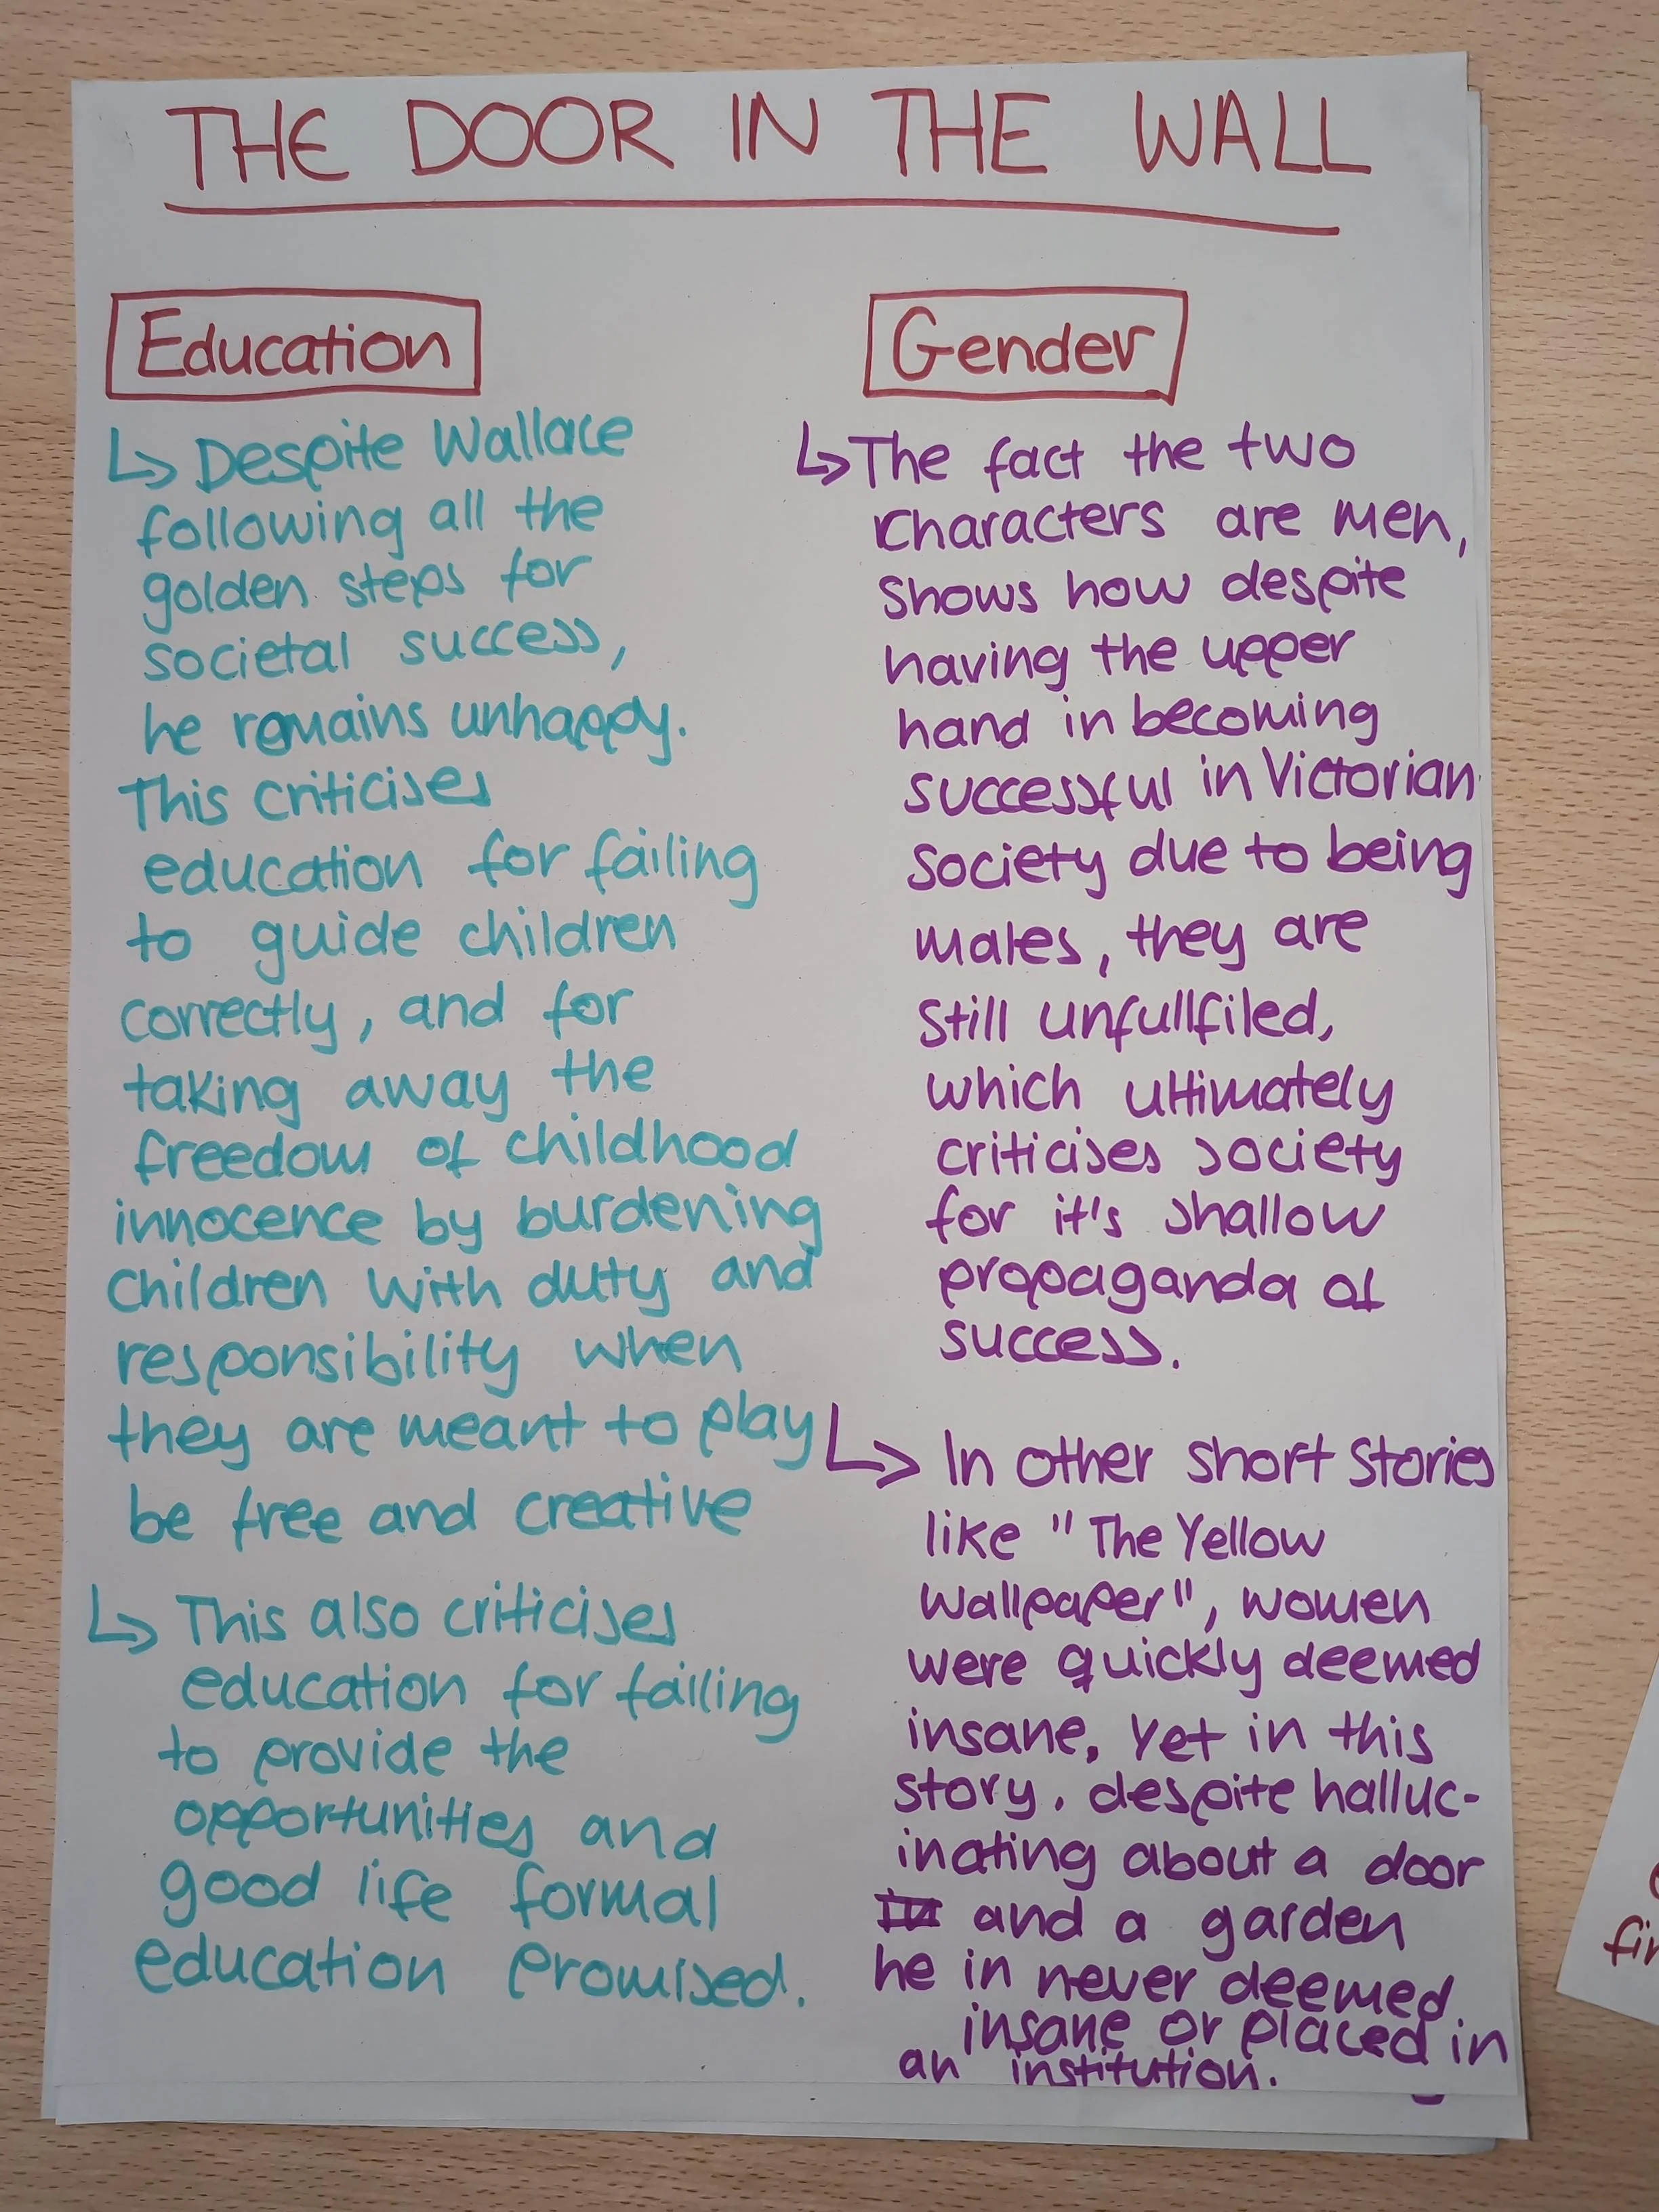 THE DOOR IN THE WALL
Education
↳ Despite Wallace
following all the
golden steps for
societal success,
he remains unhappy.
This criticises
education for failing
to guide children
correctly, and for
taking away the
freedom of childhood
innocence by burdening
children with duty and
responsibility when
they are meant to play
be free and creative
↳ This also criticises
education for failing
to provide the
opportunities and
good life formal
education promised.
Gender
↳ The fact the two
characters are men,
shows how despite
having the upper
hand in becoming
successful in Victorian
society due to being
males, they are
still unfullfiled,
which ultimately
criticises society
for it's shallow
propaganda of
success.
↳ In other short stories
like "The Yellow
Wallpaper", women
were quickly deemed
insane, yet in this
story, despite halluc-
inating about a door
and a garden
he in never deemed
insane or placed in
an institution.